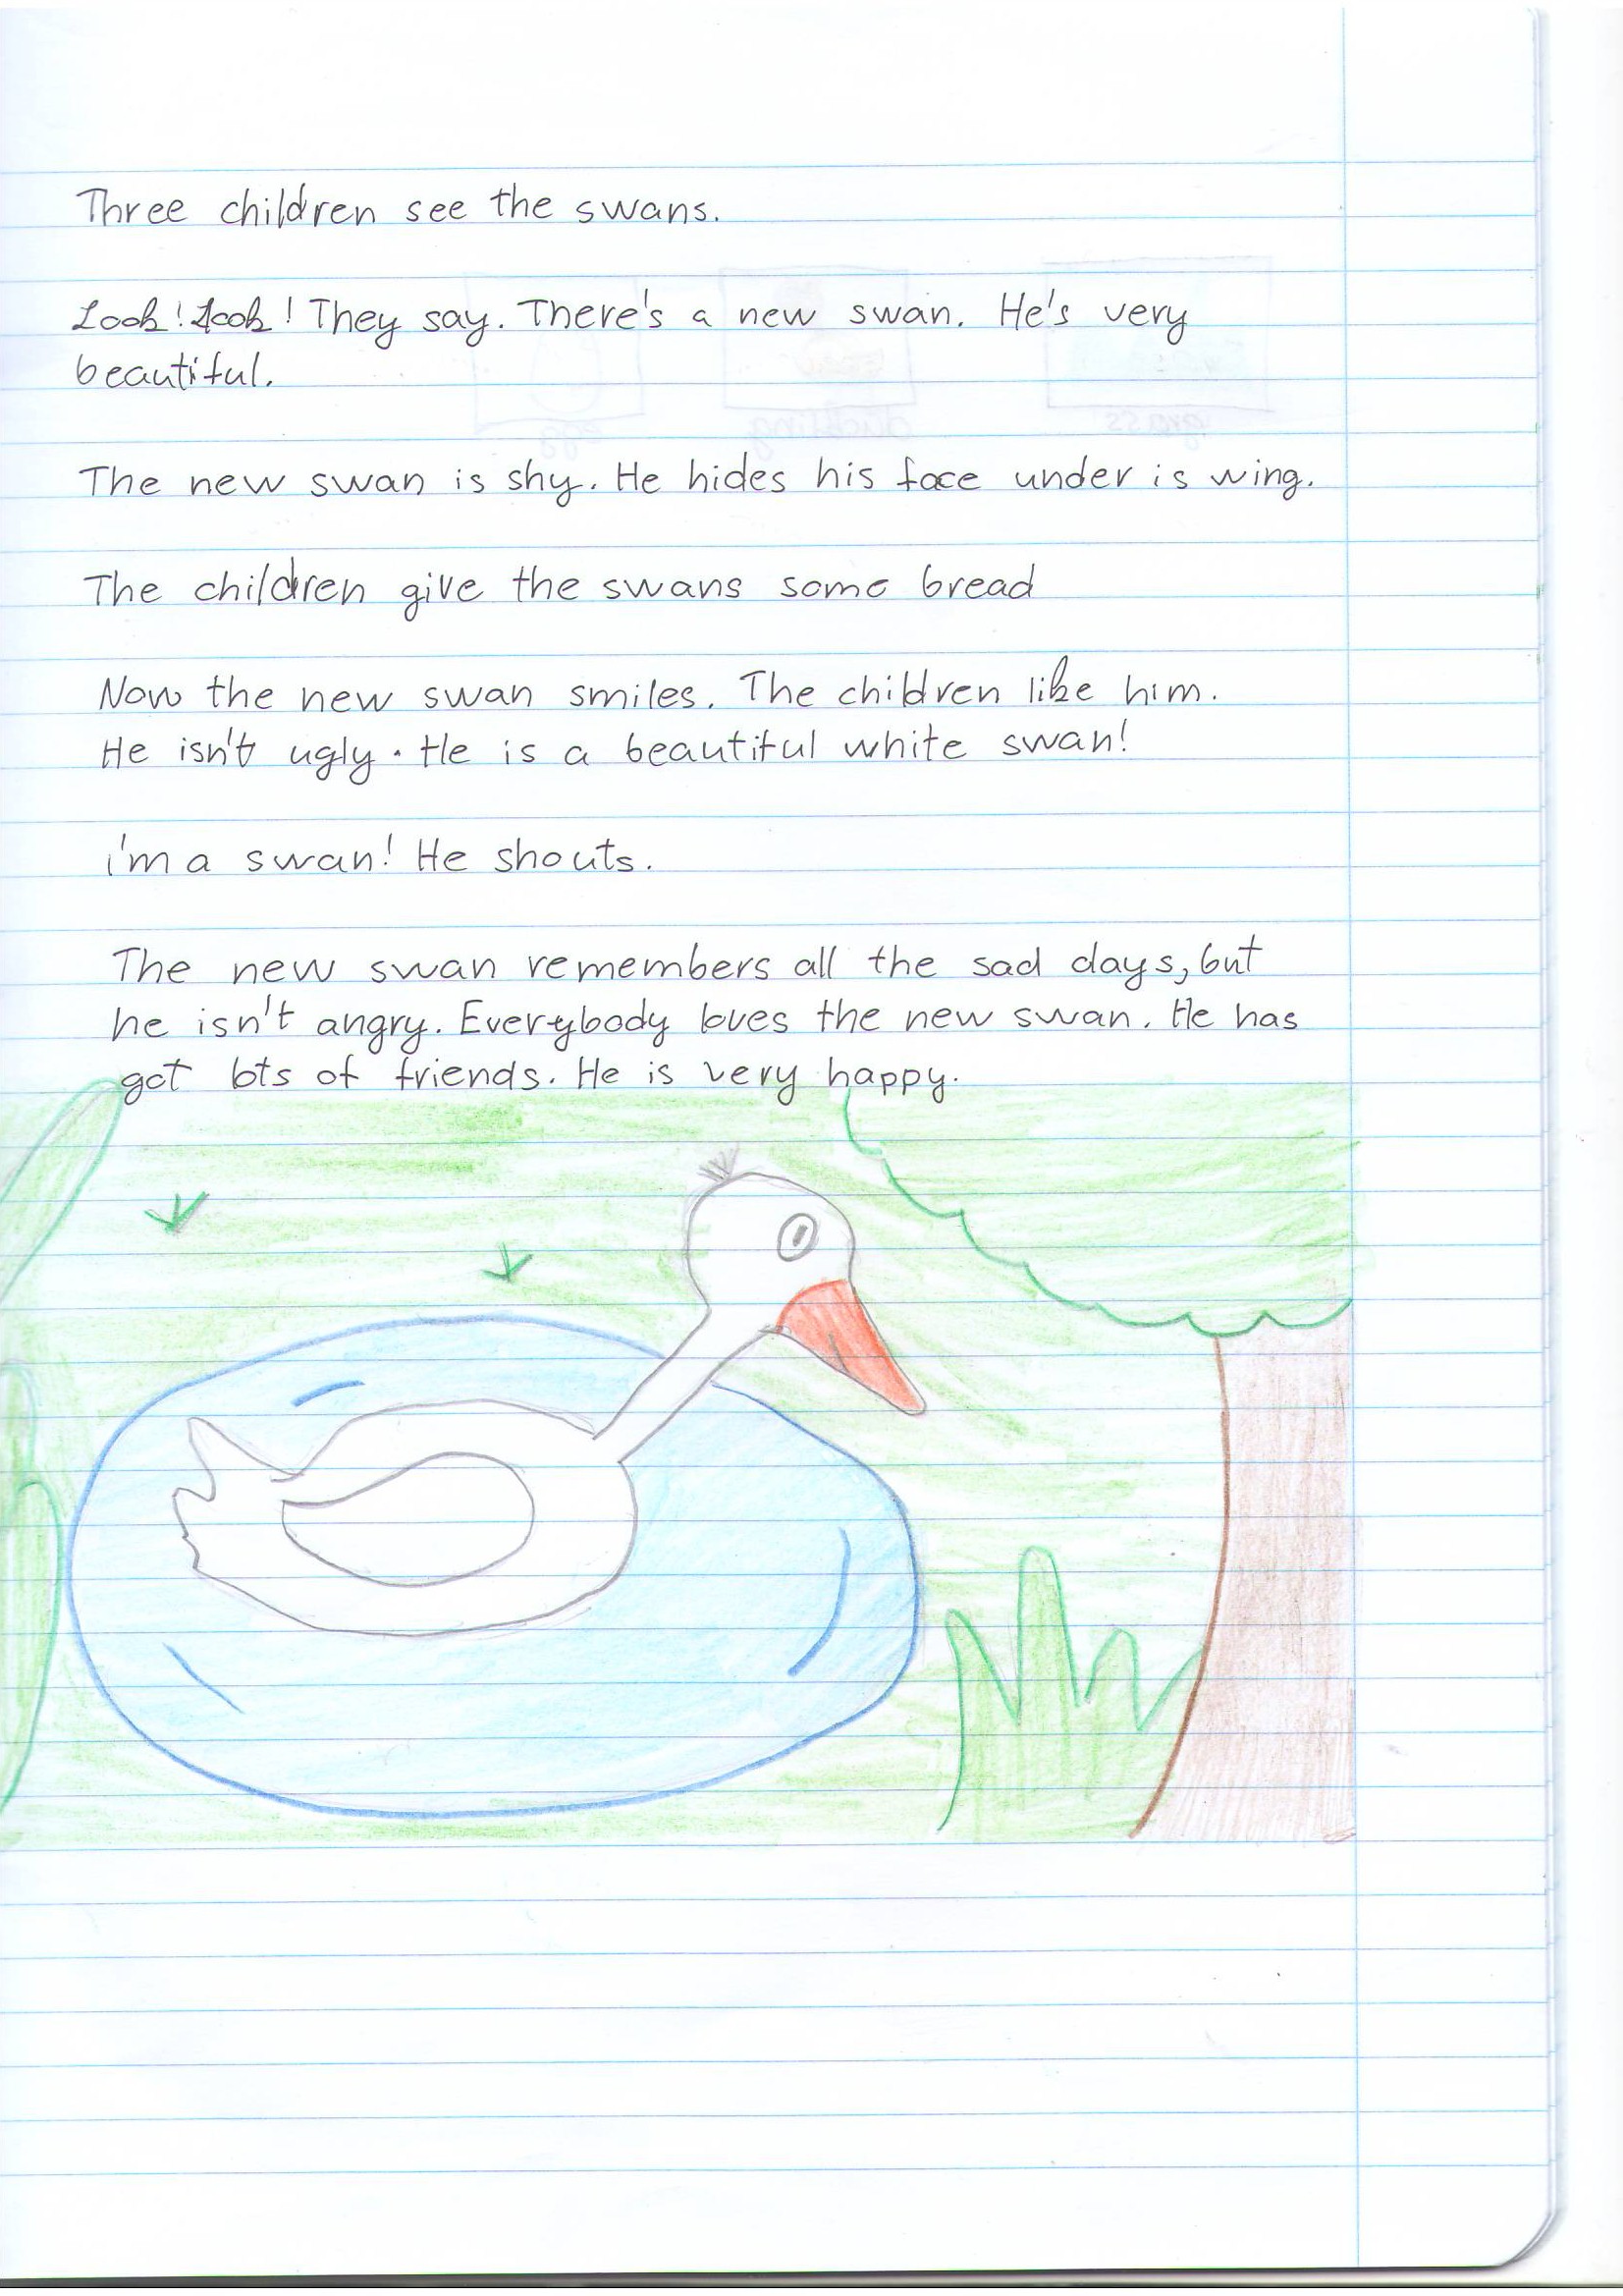 Three children see the swans.
Look! Look! They say. There's a new swan. He's very
beautiful.
The new swan is shy. He hides his face under is wing.
The children give the swans some bread
Now the new swan smiles. The children like him.
He isn't ugly. He is a beautiful white swan!
i'm a swan! He shouts.
The new swan remembers all the sad days, but
he isn't angry. Everybody loves the new swan. He has
got lots of friends. He is very happy.
grass
duckling
egg